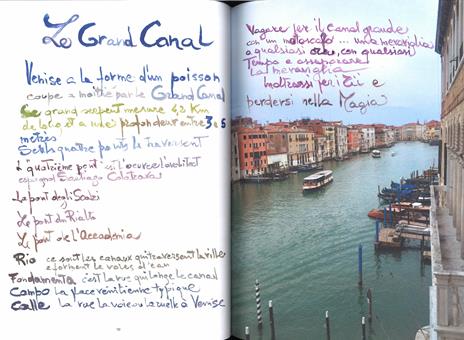 Le Grand Canal
Venise a la forme d'un poisson
coupé a moitié par le Grand Canal
Ce grand serpent mesure 4,2 Km
de long et a une profondeur entre 3 a 5
mètres
Seuls quatre ponts le traversent
L quatrième pont est l'œuvre de l'architect
espagnol Santiago Calatrava
Le pont degli Scalzi
Le Pont du Rialto
Le Pont de l'Accademia
Rio ce sont les canaux qui traversent la ville
et forment les voies d'eau
Fondamenta c'est la rue qui longe le canal
Campo la place vénitienne typique
Calle la rue la voie ou la ruelle à Venise
Vagare per il canal grande
con un motoscafo ... una meraviglia
a qualsiasi ora, con qualsiasi
Tempo e assaporare
La meraviglia
Inoltrarsi per i
perdersi nella Magia